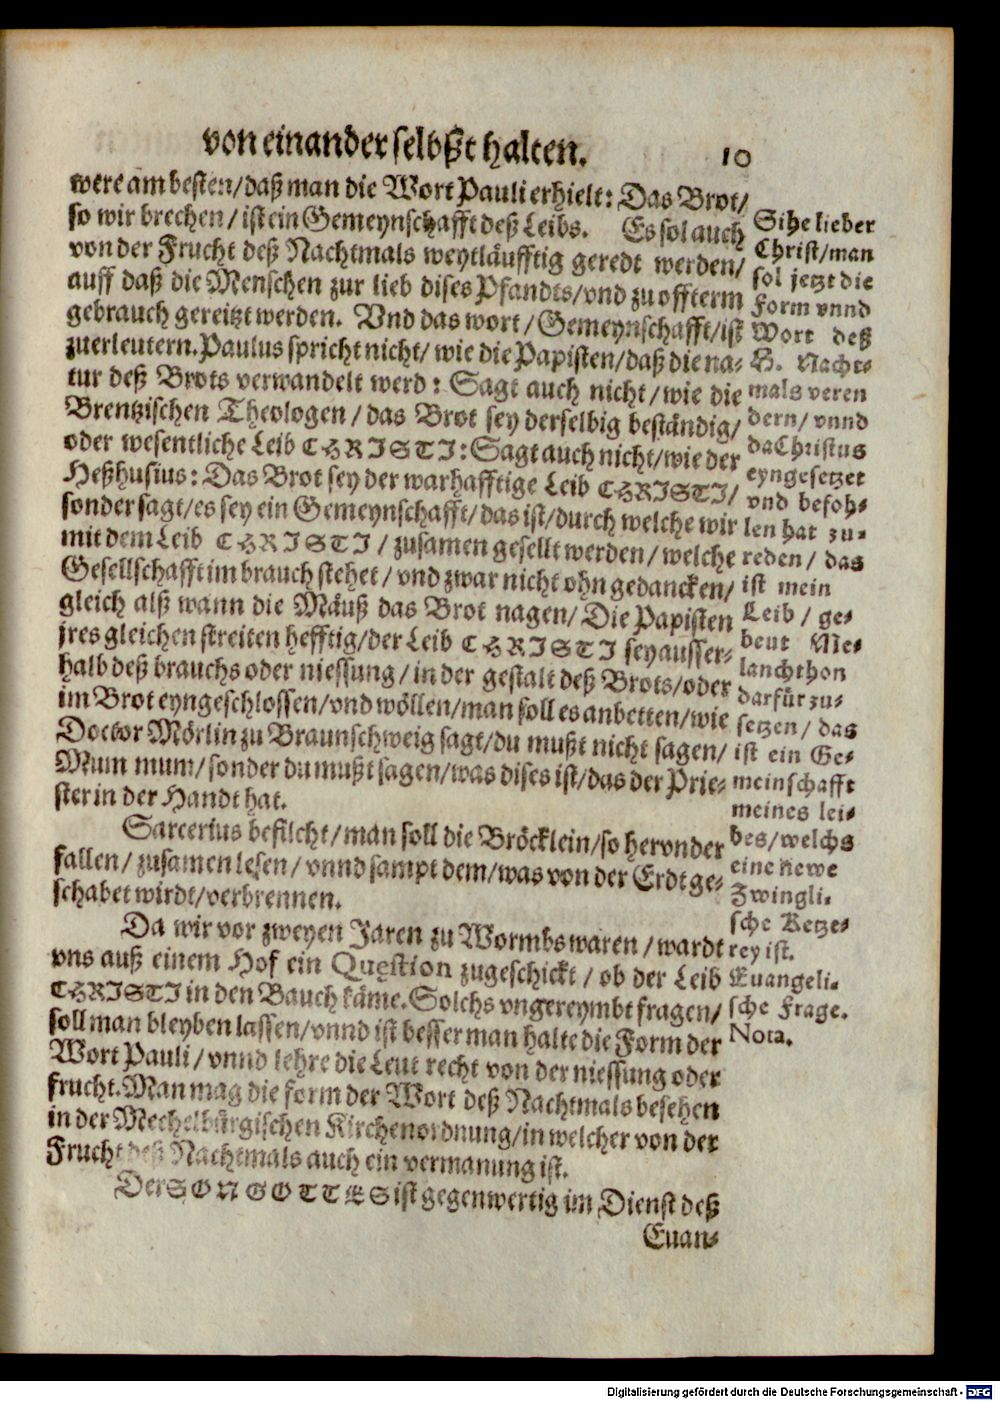 von einander selbßt halten. 10
were am besten/daß man die Wort Pauli erhielt: Das Brot/
so wir brechen/ist ein Gemeynschafft deß Leibs. Es sol auch
von der Frucht deß Nachtmals weytläufftig geredt werden/
auff daß die Menschen zur lieb dises Pfandts/vnd zu offterm
gebrauch gereitzt werden. Vnd das wort/Gemeynschafft/ist
zuerleutern. Paulus spricht nicht/wie die Papisten/daß die na-
tur deß Brots verwandelt werd: Sagt auch nicht/wie die
Brentzischen Theologen/das Brot sey derselbig beständig/
oder wesentliche Leib CHRISTI: Sagt auch nicht/wie der
Heßhusius: Das Brot sey der warhafftige Leib CHRISTI/
sonder sagt/es sey ein Gemeynschafft/das ist/durch welche wir
mit dem Leib CHRISTI/zusamen gesellt werden/welche
Gesellschafft im brauch stehet/vnd zwar nicht ohn gedancken/
gleich alß wann die Mäuß das Brot nagen/Die Papisten
jres gleichen streiten hefftig/der Leib CHRISTI sey ausser-
halb deß brauchs oder niessung/in der gestalt deß Brots/oder
im Brot eyngeschlossen/vnd wöllen/man soll es anbetten/wie
Doctor Mörlin zu Braunschweig sagt/du mußt nicht sagen/
Mum mum/sonder du mußt sagen/was dises ist/das der Prie-
ster in der Handt hat.
Sarcerius befilcht/man soll die Bröcklein/so herunder
fallen/zusamen lesen/vnnd sampt dem/was von der Erdt ge-
schabet wirdt/verbrennen.
Da wir vor zweyen Jaren zu Wormbs waren/wardt
vns auß einem Hof ein Quęstion zugeschickt/ob der Leib
CHRISTI in den Bauch käme. Solchs vngereymbt fragen/
soll man bleyben lassen/vnnd ist besser man halte die Form der
Wort Pauli/vnnd lehre die Leut recht von der niessung oder
frucht. Man mag die form der Wort deß Nachtmals besehen
in der Mechelbürgischen Kirchenordnung/in welcher von der
Frucht deß Nachtmals auch ein vermanung ist.
Der SON GOTTES ist gegenwertig im Dienst deß
Euan-
Sihe lieber
Christ/man
sol jetzt die
Form vnnd
Wort deß
H. Nacht-
mals veren
dern/vnnd
da Christus
eyngesetzet
vnd befoh-
len hat zu-
reden/das
ist mein
Leib/ge-
beut Me-
lanchthon
darfür zu-
setzen/das
ist ein Ge-
meinschafft
meines lei-
bes/welchs
eine newe
Zwingli-
sche Ketze-
rey ist.
Euangeli-
sche Frage.
Nota.
Digitalisierung gefördert durch die Deutsche Forschungsgemeinschaft - DFG